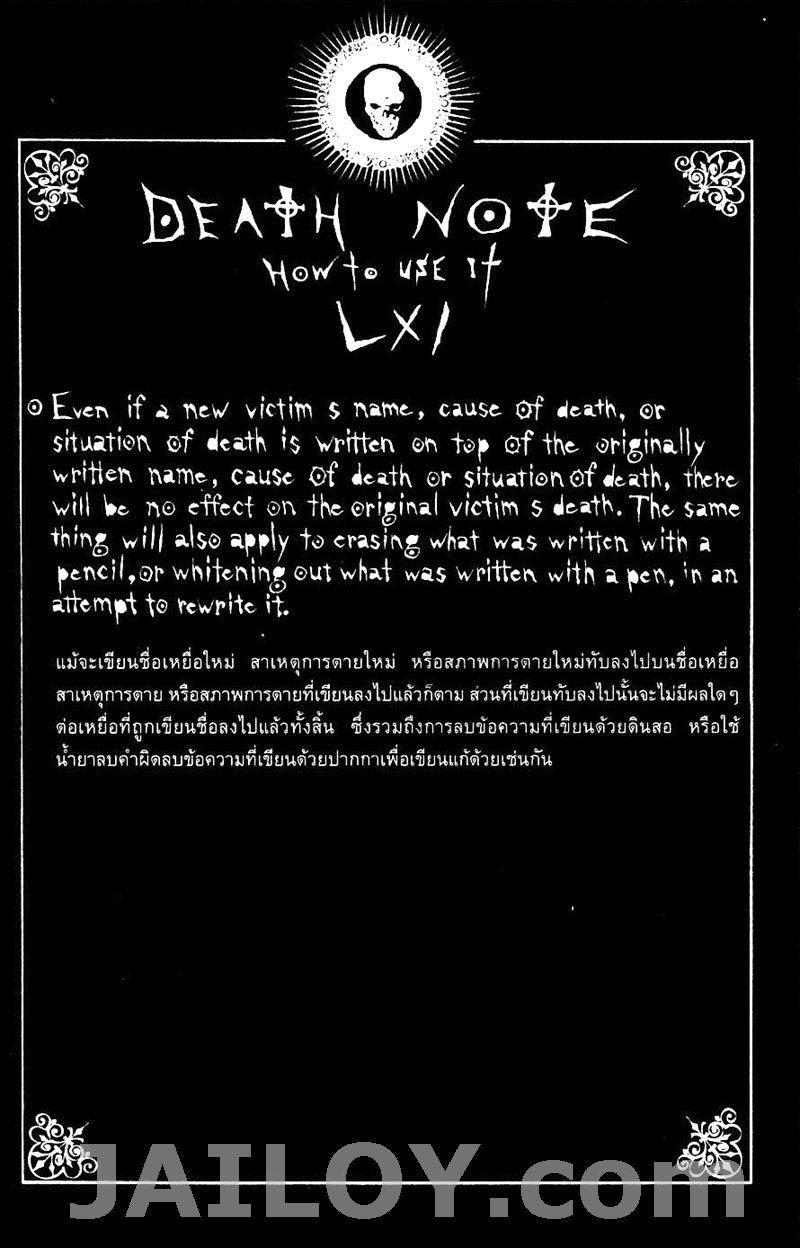 DEATH NOTE
HOW to USE It
LXI
Even if a new victim s name, cause of death, or
situation of death is written on top of the originally
written name, cause of death or situation of death, there
will be no effect on the original victim s death. The same
thing will also apply to erasing what was written with a
pencil, or whitening out what was written with a pen, in an
attempt to rewrite it.
แม้จะเขียนชื่อเหยื่อใหม่ สาเหตุการตายใหม่ หรือสภาพการตายใหม่ทับลงไปบนชื่อเหยื่อ
สาเหตุการตาย หรือสภาพการตายที่เขียนลงไปแล้วก็ตาม ส่วนที่เขียนทับลงไปนั้นจะไม่มีผลใดๆ
ต่อเหยื่อที่ถูกเขียนชื่อลงไปแล้วทั้งสิ้น ซึ่งรวมถึงการลบข้อความที่เขียนด้วยดินสอ หรือใช้
น้ำยาลบคำผิดลบข้อความที่เขียนด้วยปากกาเพื่อเขียนแก้ด้วยเช่นกัน
JAILOY.com